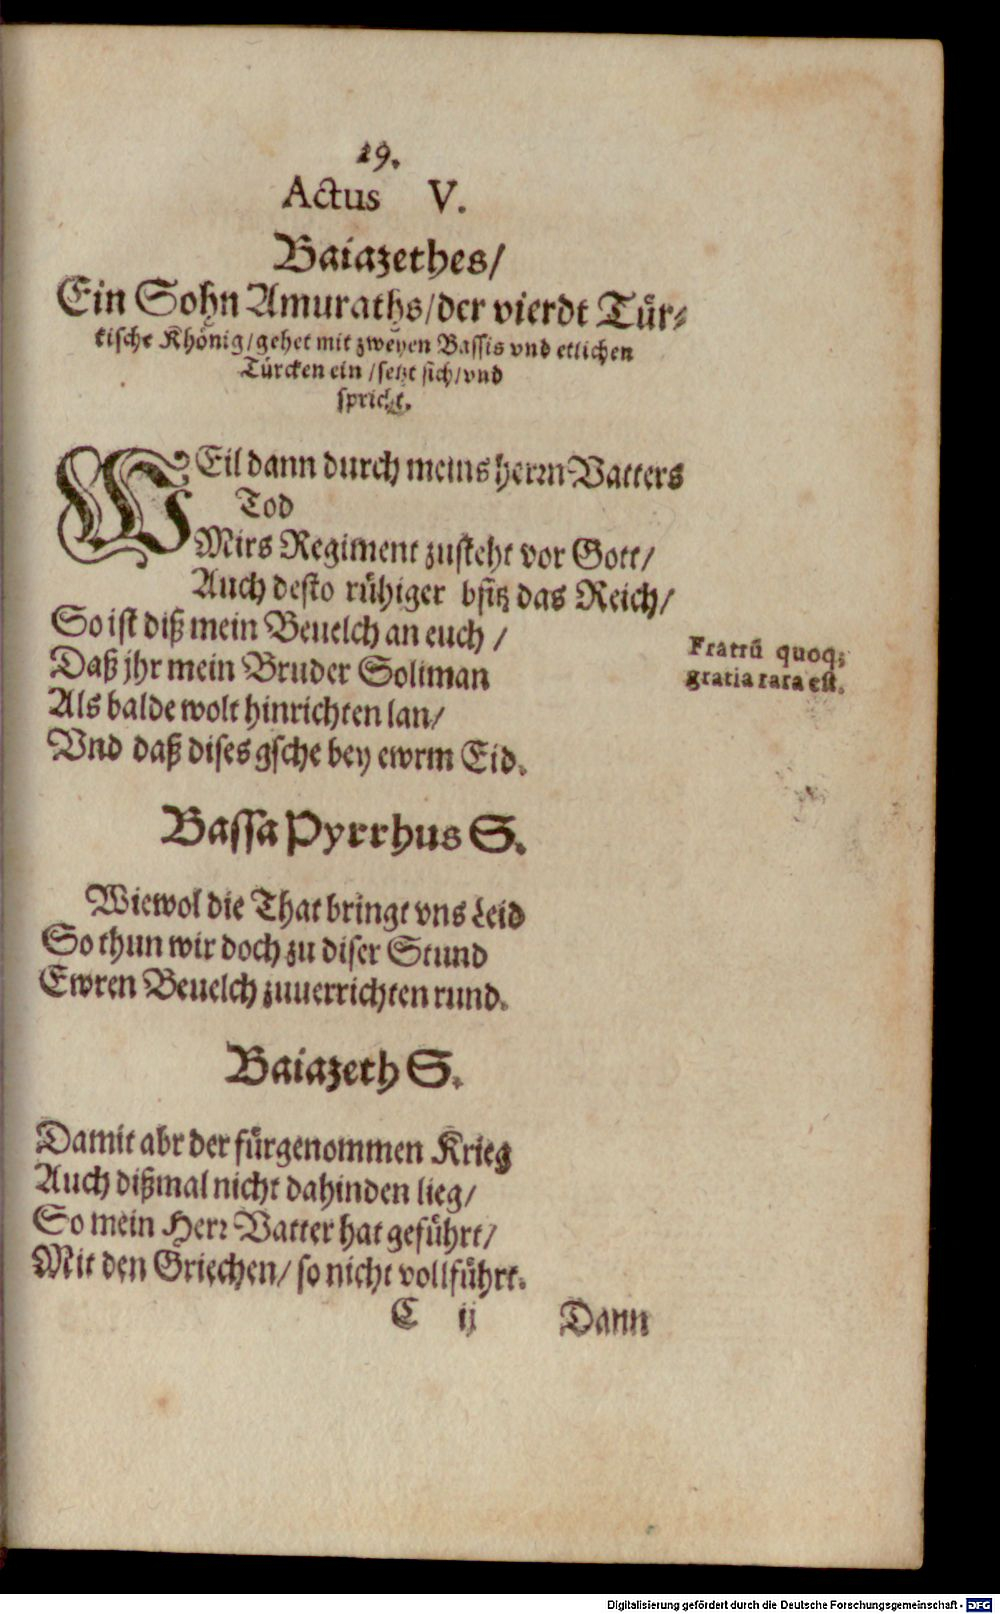 19.
Actus V.
Baiazethes/
Ein Sohn Amuraths/der vierdt Tür⸗
kische Khönig/gehet mit zweyen Bassis vnd etlichen
Türcken ein/setzt sich/vnd
spricht.
WEil dann durch meins herrn Vatters
Tod
Mirs Regiment zusteht vor Gott/
Auch desto rühiger bsitz das Reich/
So ist diß mein Beuelch an euch/
Fratrũ quoq;
Daß jhr mein Bruder Soliman
gratia rara est.
Als balde wolt hinrichten lan/
Vnd daß dises gsche bey ewrm Eid.
Bassa Pyrrhus S.
Wiewol die That bringt vns Leid
So thun wir doch zu diser Stund
Ewren Beuelch zuuerrichten rund.
Baiazeth S.
Damit abr der fürgenommen Krieg
Auch dißmal nicht dahinden lieg/
So mein Herr Vatter hat geführt/
Mit den Griechen/so nicht vollführt.
C ij Dann
Digitalisierung gefördert durch die Deutsche Forschungsgemeinschaft - DFG